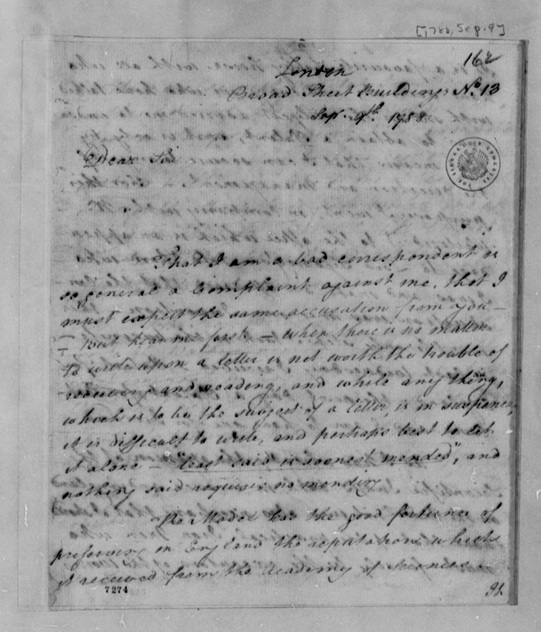 [1788, Sep. 9]
162
London
Broad Street Buildings No. 13
Sep. 9th. 1788.
Dear Sir
That I am a bad correspondent is
so general a complaint against me, that I
must expect the same accusation from you —
but hear me first — when there is no matter
to write upon a letter is not worth the trouble of
receiving and reading, and while any thing,
which is to be the subject of a letter, is in suspence,
it is difficult to write, and perhaps best to let
it alone — "least said is soonest mended", and
nothing said requires no mending
The Model has the good fortune of
preserving in England the reputation which
it received from the Academy of Sciences —
It
7274